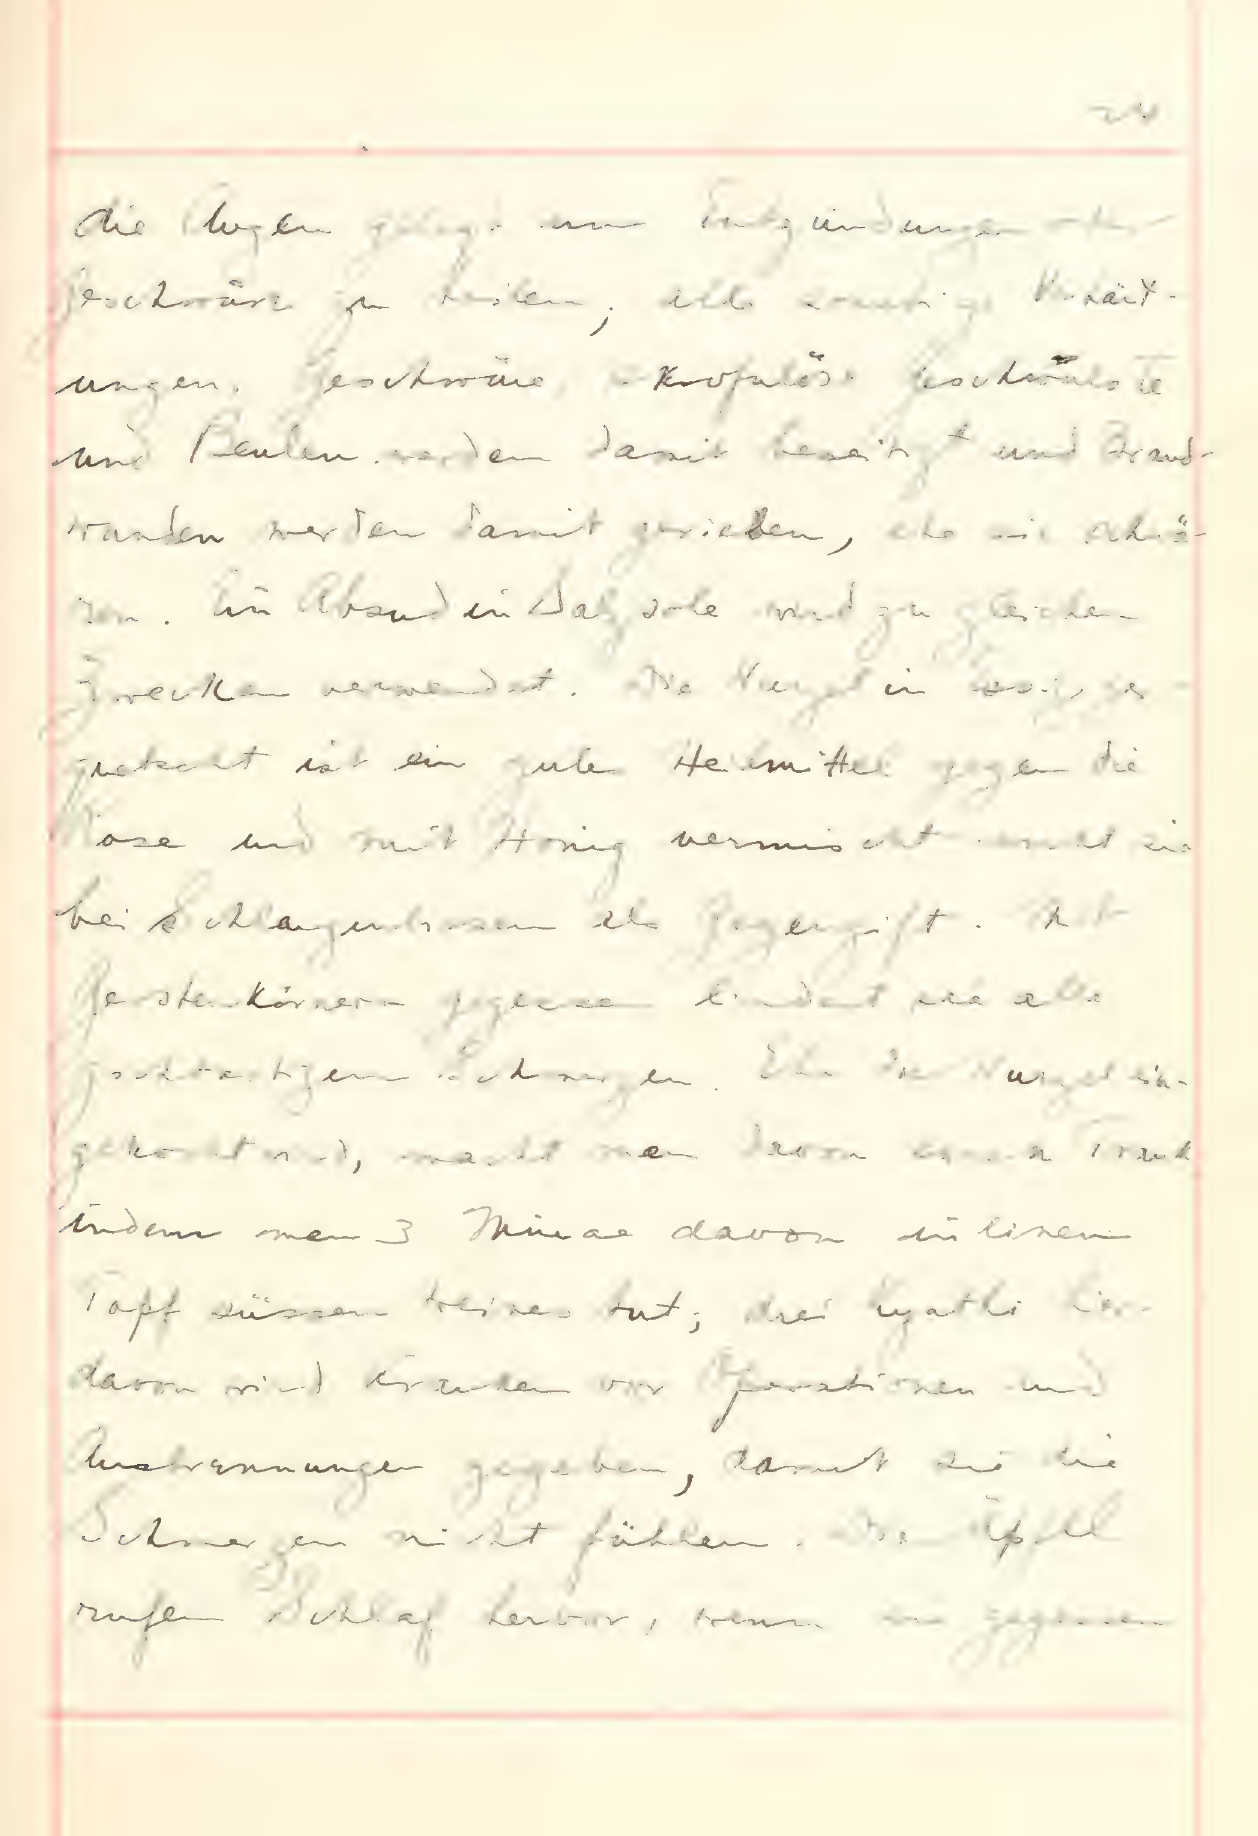 24
die Augen gelegt um Entzündungen oder
Geschwüre zu heilen; alle sonstige Verhärt-
ungen. Geschwüre, skrofulöse Geschwülste
und Beulen werden damit beseitigt und Brand-
wunden werden damit gerieben, ehe sie schwä-
ren. Ein Absud in Salzsole wird zu gleichen
Zwecken verwendet. Die Wurzel in Essig, ge-
quetscht ist ein gutes Heilmittel gegen die
Rose und mit Honig vermischt sie
bei Schlangenbissen als Gegengift. Mit
Gerstenkörnern gegessen lindert sie alle
gichtartigen Schmerzen. Ehe die Wurzel ein-
gekocht wird, macht man davon einen Trank
indem man 3 Minae davon in einen
Topf süssen Weines tut; drei Kyathi hier-
davon wird Kranken vor Operationen und
Ausbrennungen gegeben, damit sie die
Schmerzen nicht fühlen. Die Äpfel
rufen Schlaf hervor, wenn sie gegessen